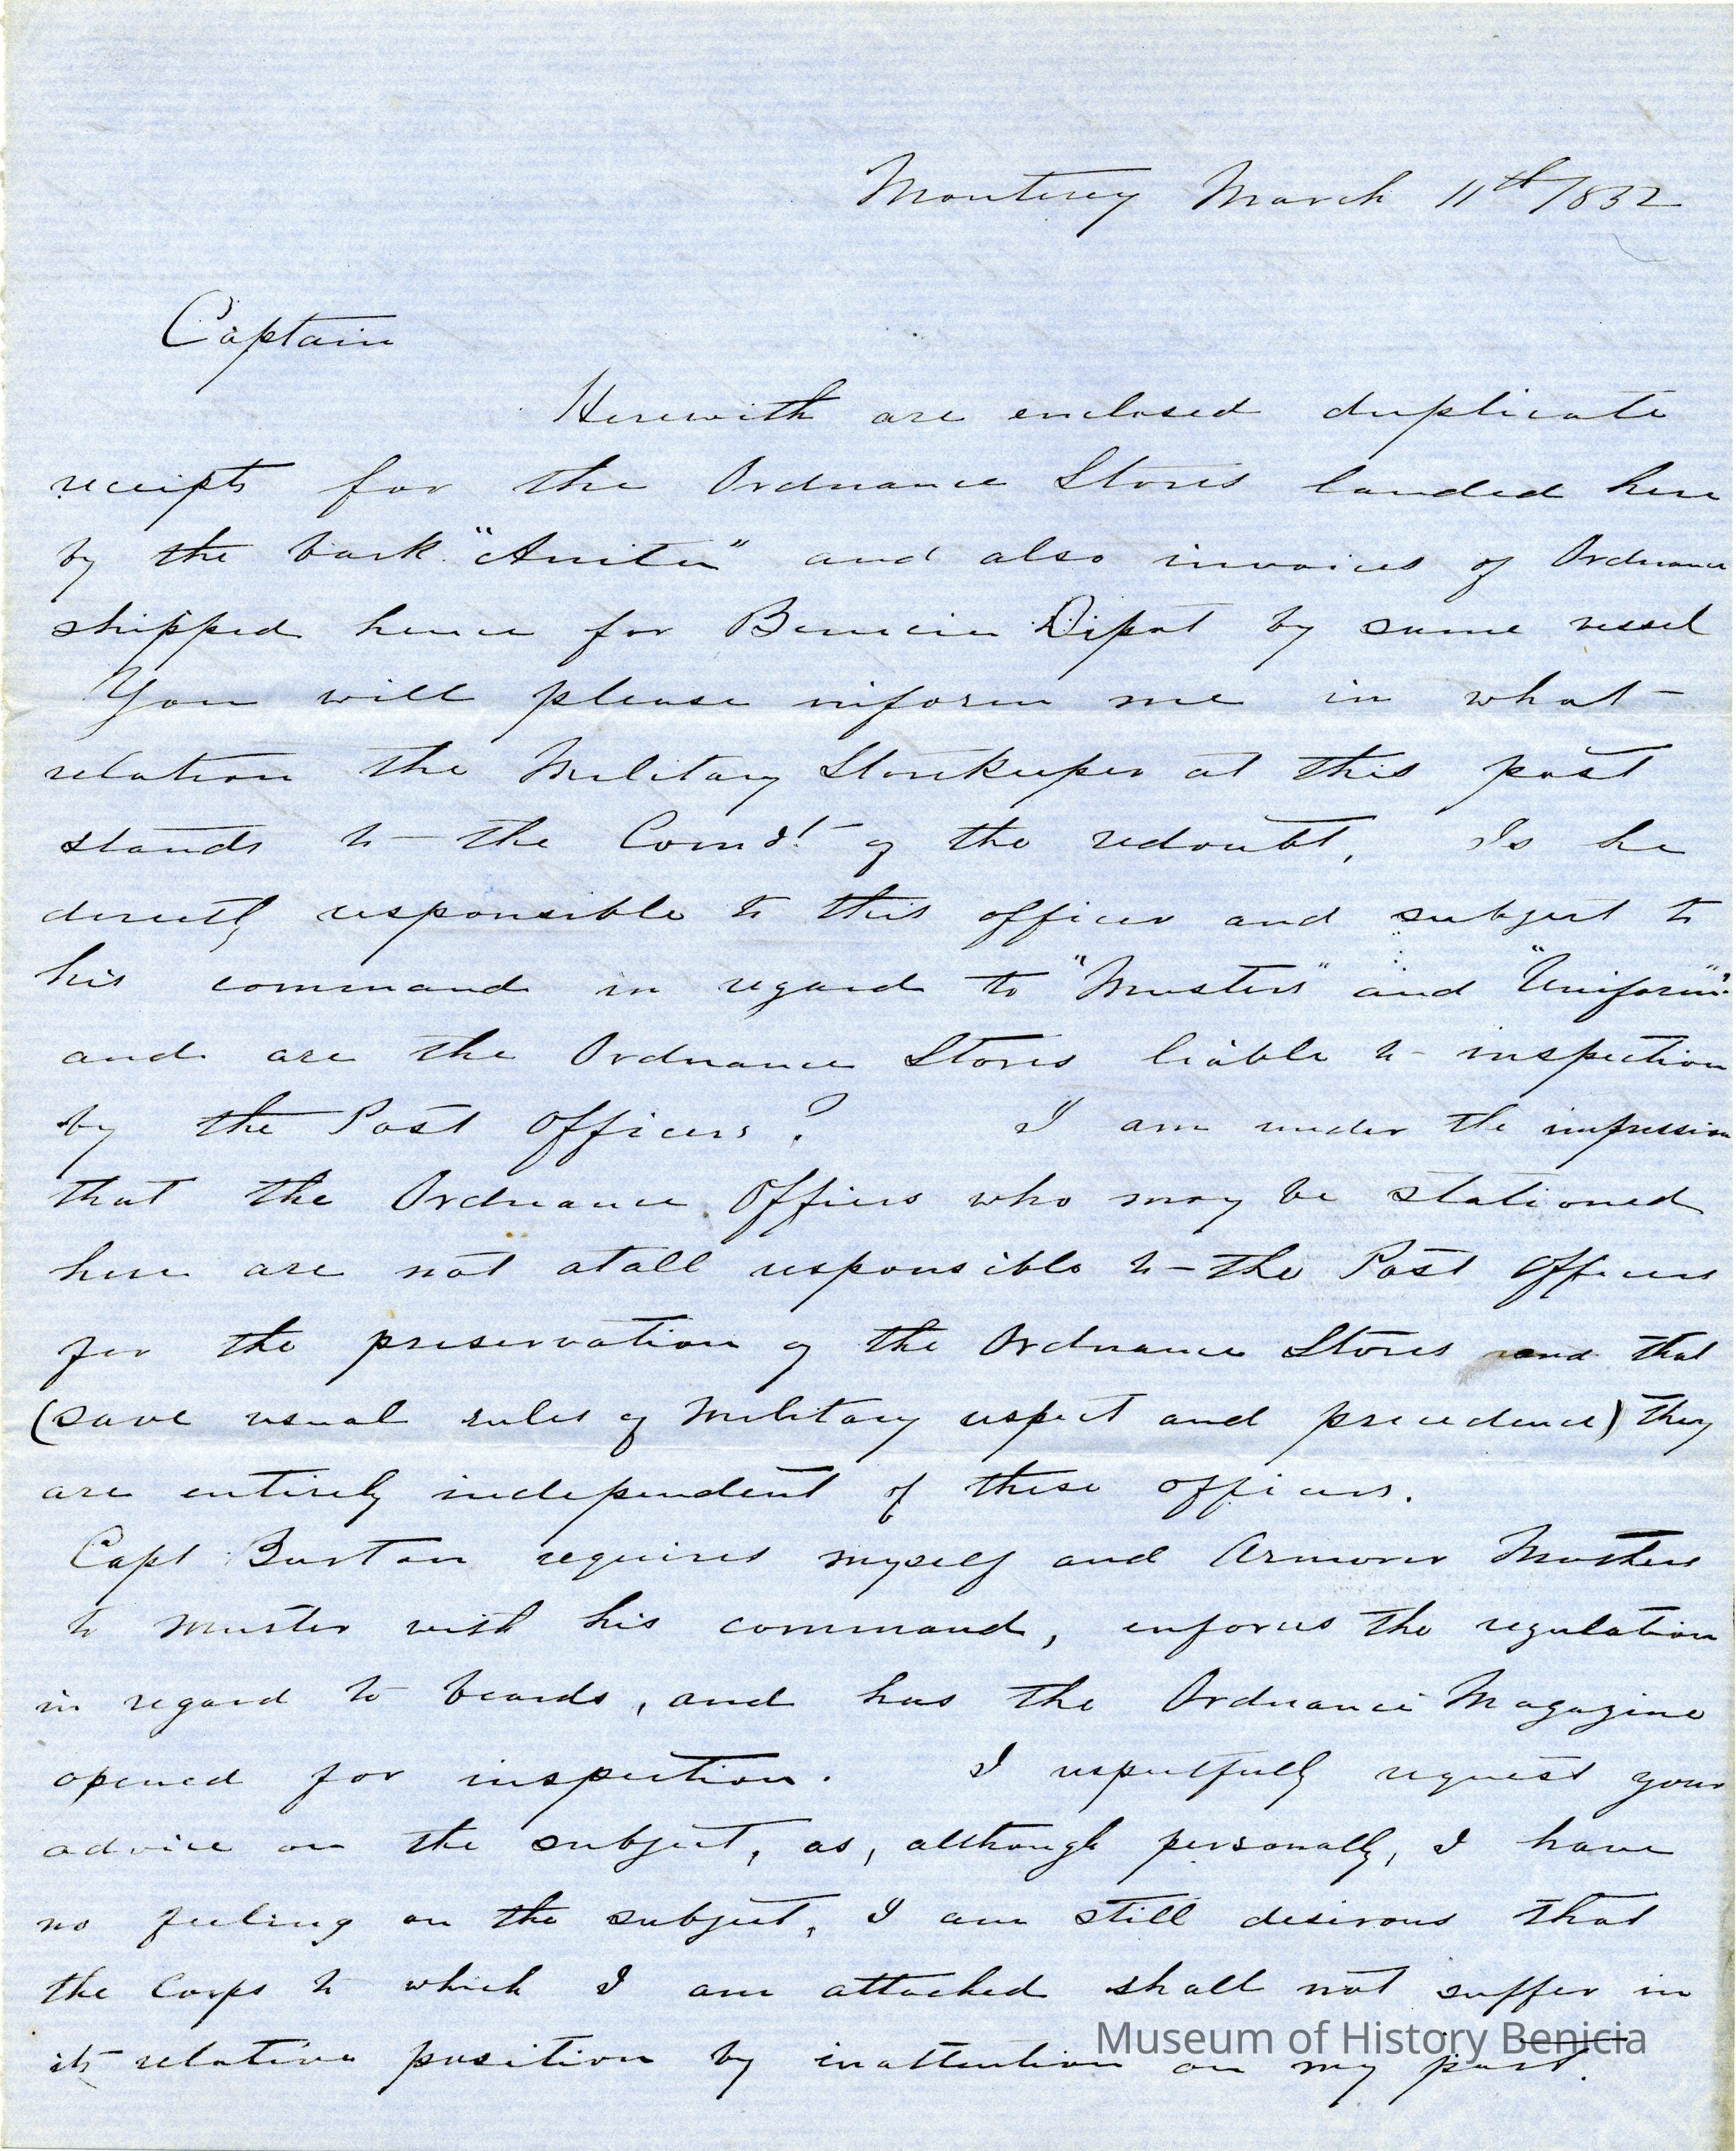 Monterey March 11th /852
Captain
Herewith are enclosed duplicate
receipts for the Ordnance Stores landed here
by the bark "Anita" and also invoices of Ordnance
shipped hence for Benicia Depot by same vessel
You will please inform me in what
relation the Military Storekeeper at this post
stands to the Comdt of the redoubt, Is he
directly responsible to this officer and subject to
his command in regard to "Musters" and "Uniform"?
and are the Ordnance Stores liable to inspection
by the Post Officers? I am under the impression
that the Ordnance Officers who may be stationed
here are not atall responsible to the Post Officers
for the preservation of the Ordnance Stores and that
(save usual rules of Military respect and precedence) they
are entirely independent of these officers.
Capt Burton requires myself and Armorer
to muster with his command, enforces the regulation
in regard to beards, and has the Ordnance Magazine
opened for inspection. I respectfully request your
advice on the subject, as, although personally, I have
no feeling on the subject, I am still desirous that
the Corps to which I am attached shall not suffer in
its relative position by inattention on my part.
Museum of History Benicia